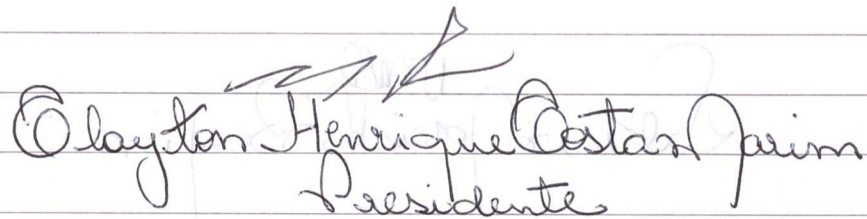 Clayton Henrique Costa Jarim
Presidente